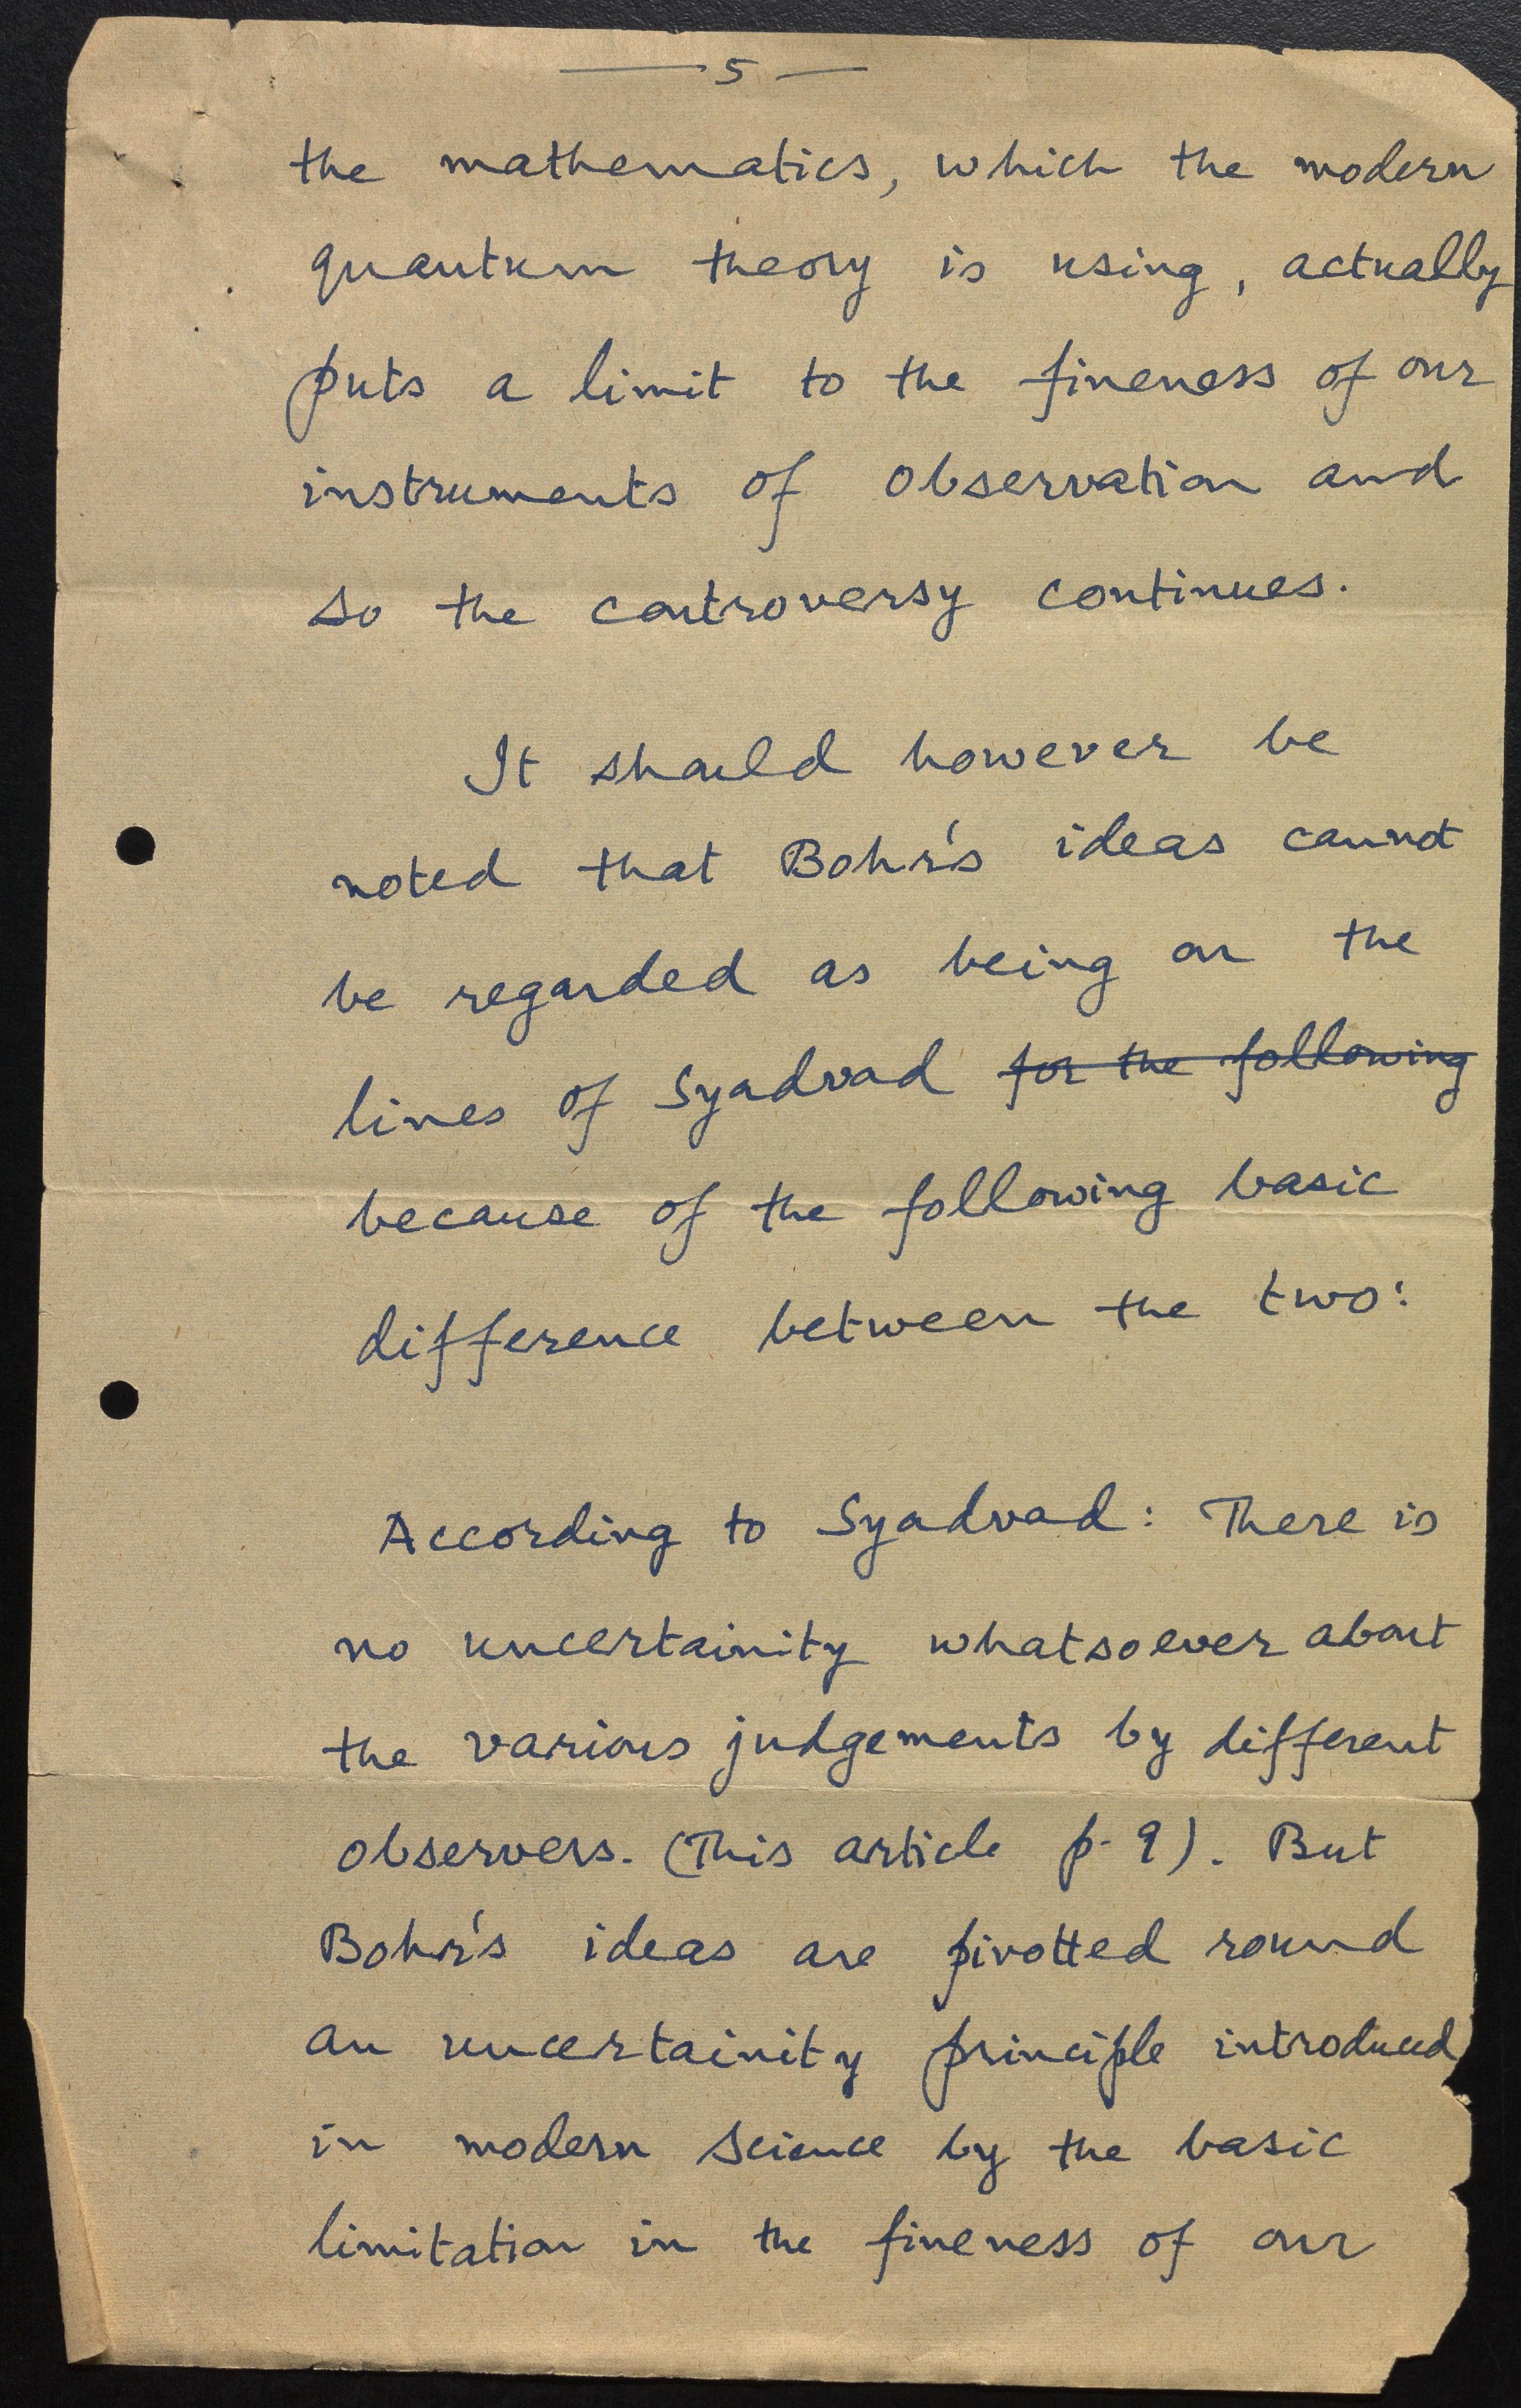 — 5 —
the mathematics, which the modern
quantum theory is using, actually
puts a limit to the fineness of our
instruments of observation and
so the controversy continues.
It should however be
noted that Bohr's ideas cannot
be regarded as being on the
lines of Syadvad for the following
because of the following basic
difference between the two:
According to Syadvad: There is
no uncertainity whatsoever about
the various judgements by different
observers. (This article p. 9). But
Bohr's ideas are pivotted round
an uncertainity principle introduced
in modern science by the basic
limitation in the fineness of our